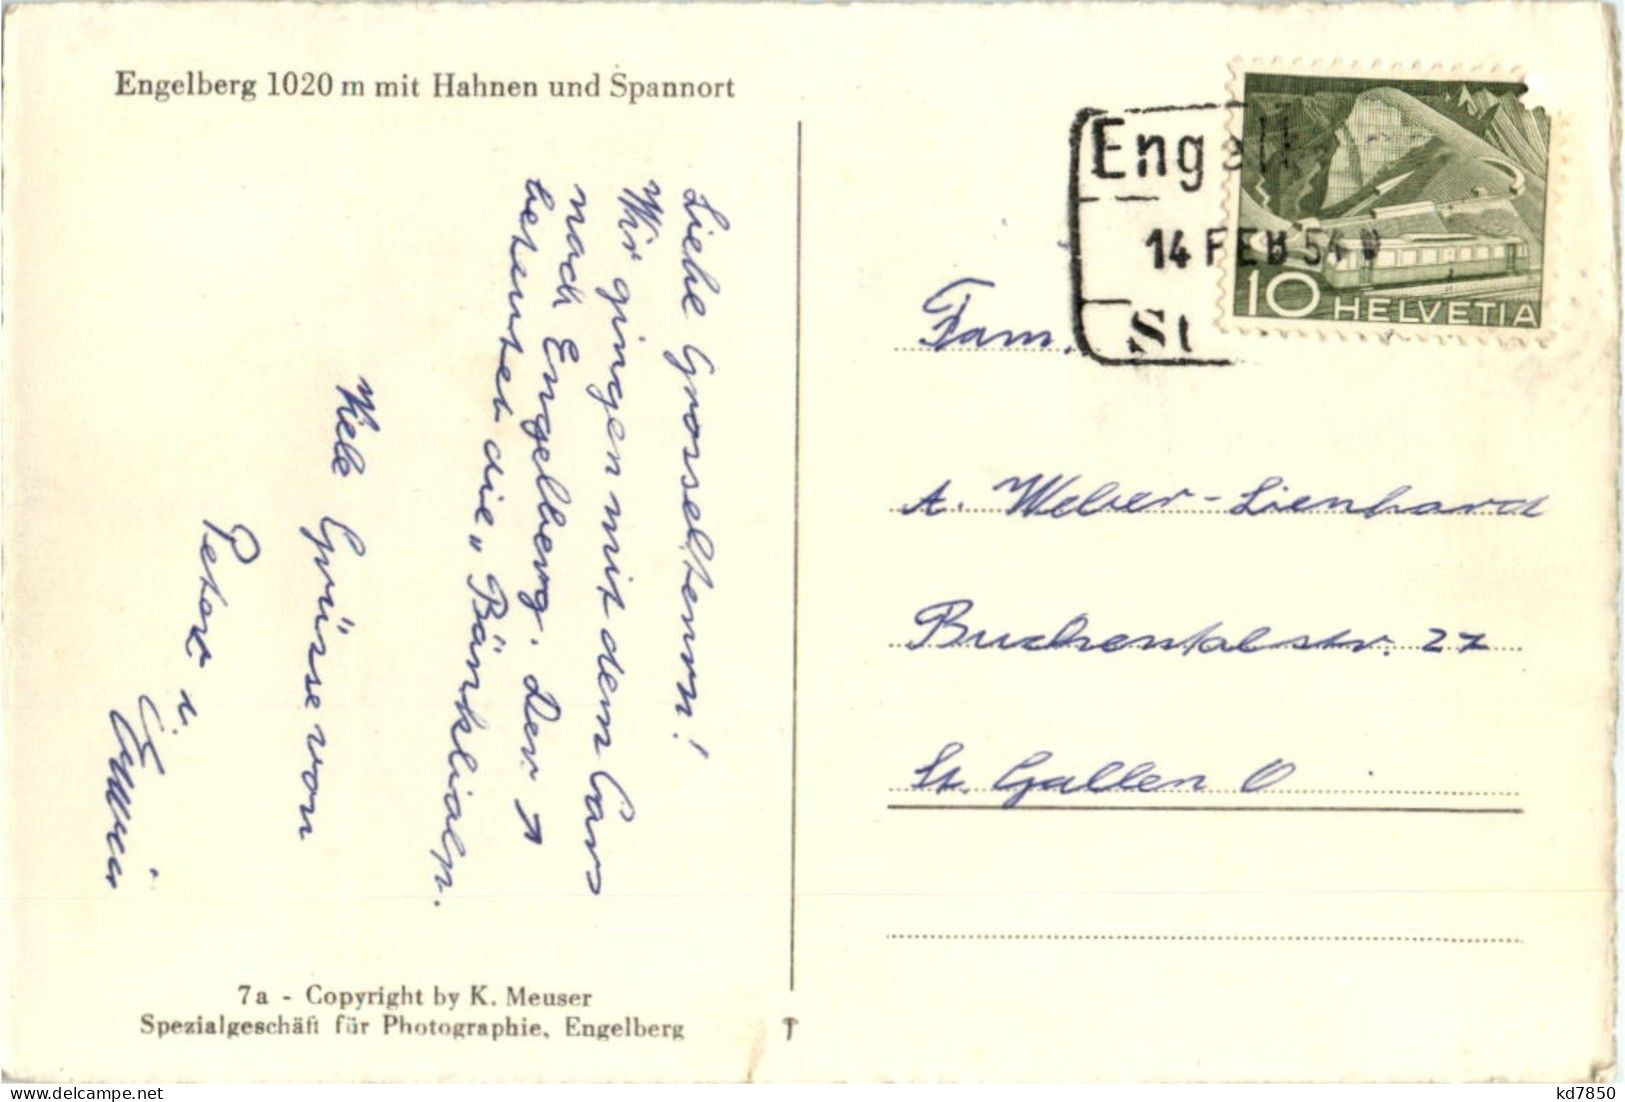 Engelberg 1020 m mit Hahnen und Spannort
Liebe Grosseltern!
Wir gingen mit dem Cars
nach Engelberg. Der ↗
betentet die „Bänklialp.
Viele Grüsse von
Peter u.
Erwin
7a - Copyright by K. Meuser
Spezialgeschäft für Photographie, Engelberg
Engelb
14 FEB 54
St
10 HELVETIA
Fam.
A. Weber-Lienhard
Buchentalstr. 27
St. Gallen O
kd7850